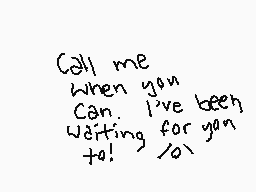 Call me
when you
can. I've been
waiting for you
to! /o\